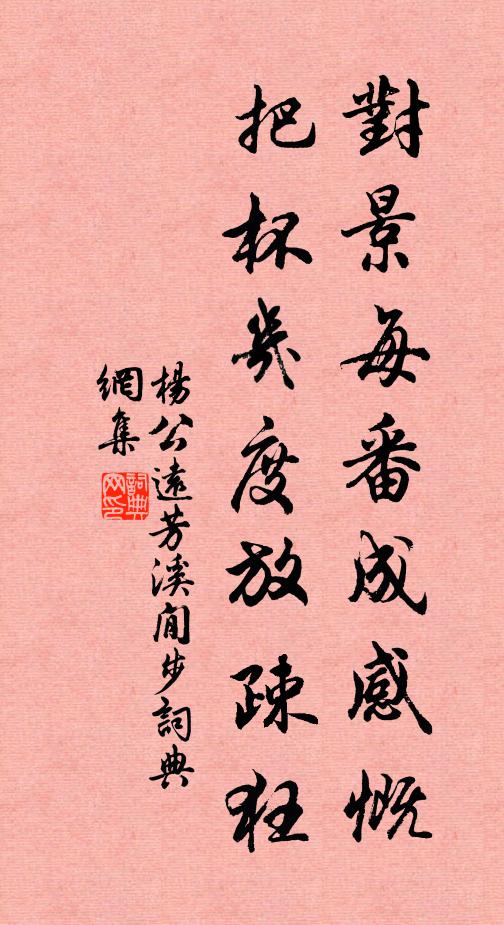 對景每番成感慨
把杯幾度放疎狂
楊公遠芳溪閒步詞典
網集
詞典
网印